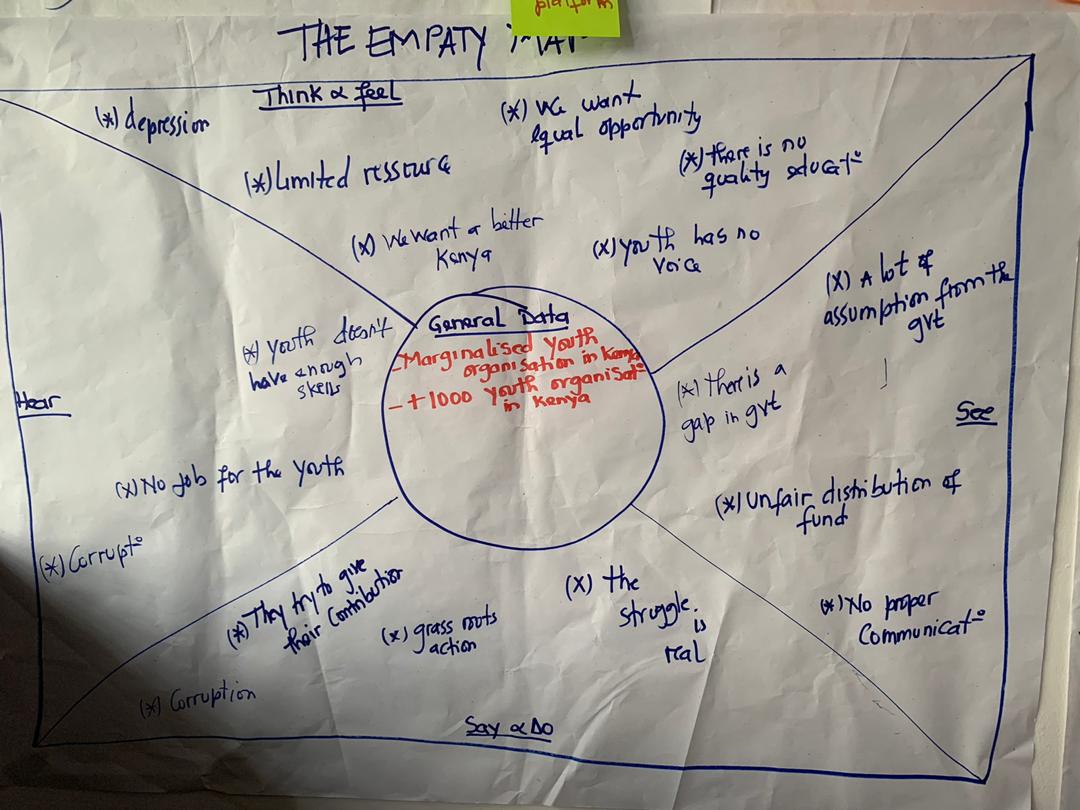 platform
THE EMPATY MAP
Think & feel
(*) depression
(*) We want
equal opportunity
(*) there is no
quality educat°
(*) Limited ressource
(x) We want a better
Kenya
(x) youth has no
voice
Hear
(*) youth doesn't
have enough
skills
(x) No job for the youth
(*) Corrupt°
General Data
- Marginalised youth
organisation in Kenya
- + 1000 youth organisat°
in Kenya
See
(x) A lot of
assumption from the
gvt
(*) there is a
gap in gvt
(*) Unfair distribution of
fund
(*) No proper
Communicat°
(*) They try to give
their contribution
(x) grass roots
action
(x) the
struggle.
is
real
(*) Corruption
Say & Do